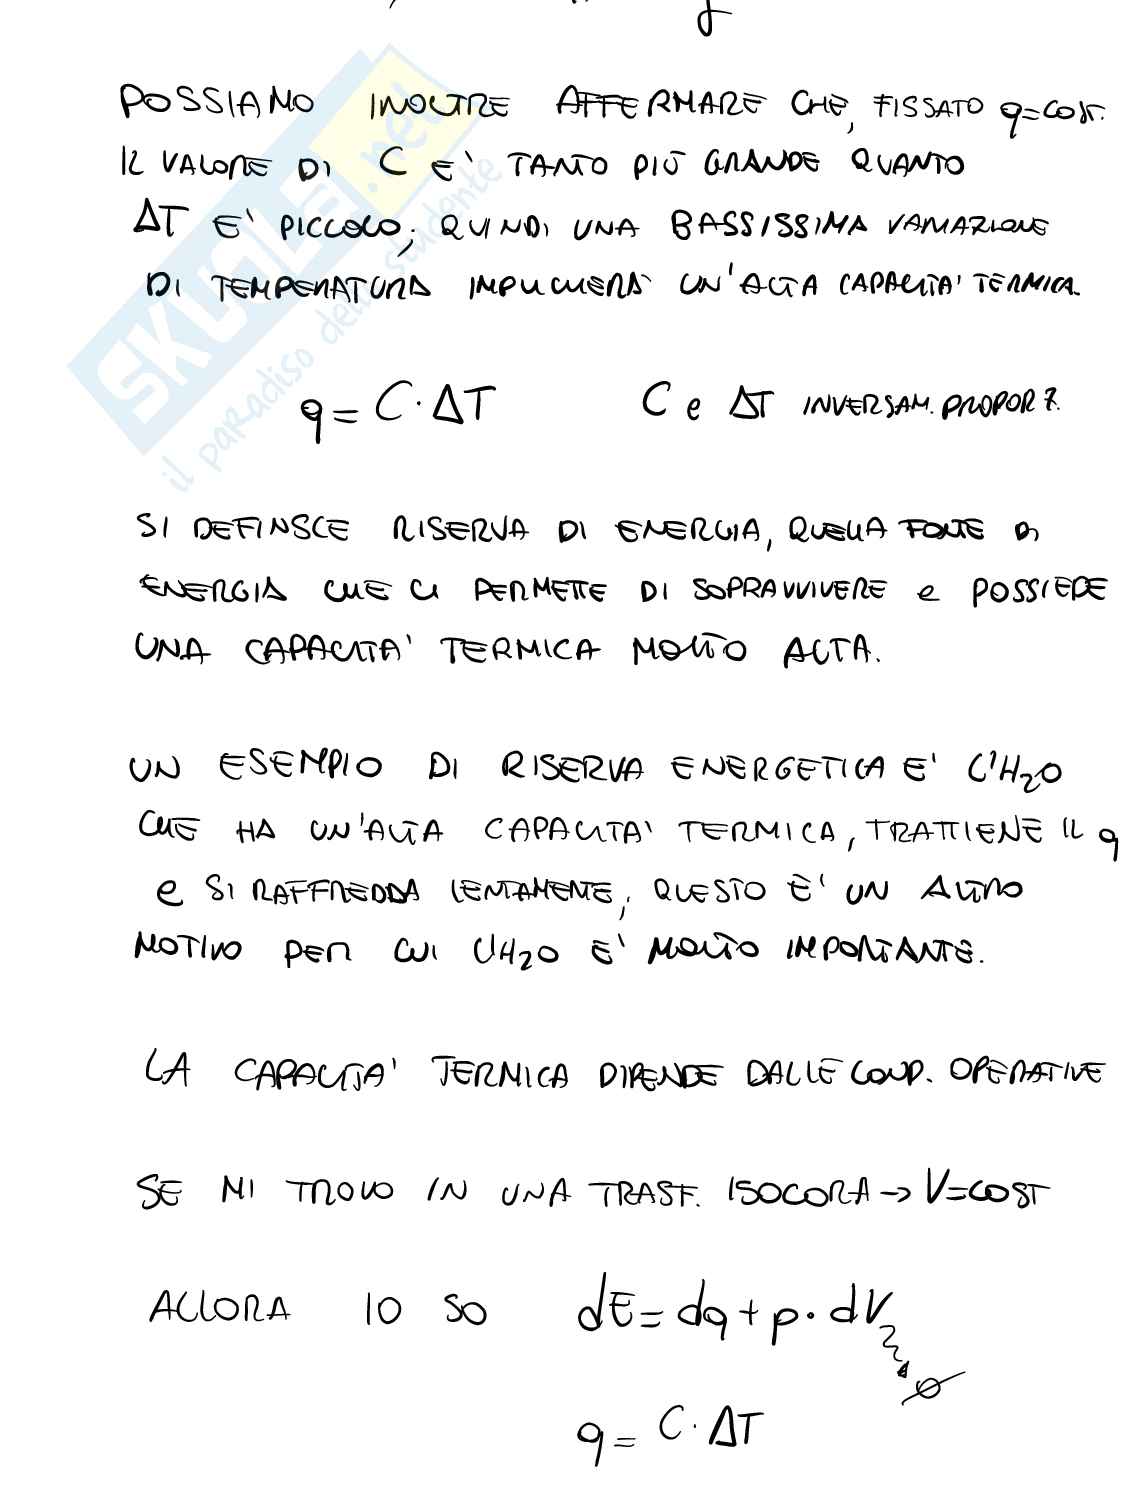 POSSIAMO INOLTRE AFFERMARE CHE, FISSATO q=COST.
IL VALORE DI C E' TANTO PIÙ GRANDE QUANTO
ΔT E' PICCOLO; QUINDI UNA BASSISSIMA VARIAZIONE
DI TEMPERATURA IMPLICHERÀ UN'ALTA CAPACITA' TERMICA.
q = C · ΔT C e ΔT INVERSAM. PROPORZ.
SI DEFINSCE RISERVA DI ENERGIA, QUELLA FONTE DI
ENERGIA CHE CI PERMETTE DI SOPRAVVIVERE e POSSIEDE
UNA CAPACITA' TERMICA MOLTO ALTA.
UN ESEMPIO DI RISERVA ENERGETICA E' L'H₂O
CHE HA UN'ALTA CAPACITA' TERMICA, TRATTIENE IL q
e SI RAFFREDDA LENTAMENTE; QUESTO E' UN ALTRO
MOTIVO PER CUI L'H₂O E' MOLTO IMPORTANTE.
LA CAPACITA' TERMICA DIPENDE DALLE COND. OPERATIVE
SE MI TROVO IN UNA TRASF. ISOCORA → V=COST
ALLORA IO SO dE = dq + p · dV
∅
q = C · ΔT
SKUOLA.net
il paradiso dello studente